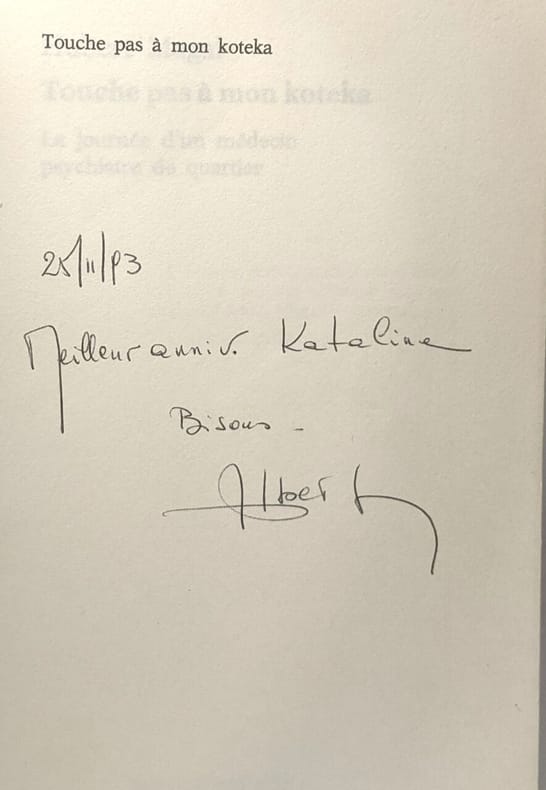 Touche pas à mon koteka
Touche pas à mon koteka
La journée d'un médecin
psychiatre de quartier
25/11/93
Meilleur anniv. Kataline
Bisous -
Albert